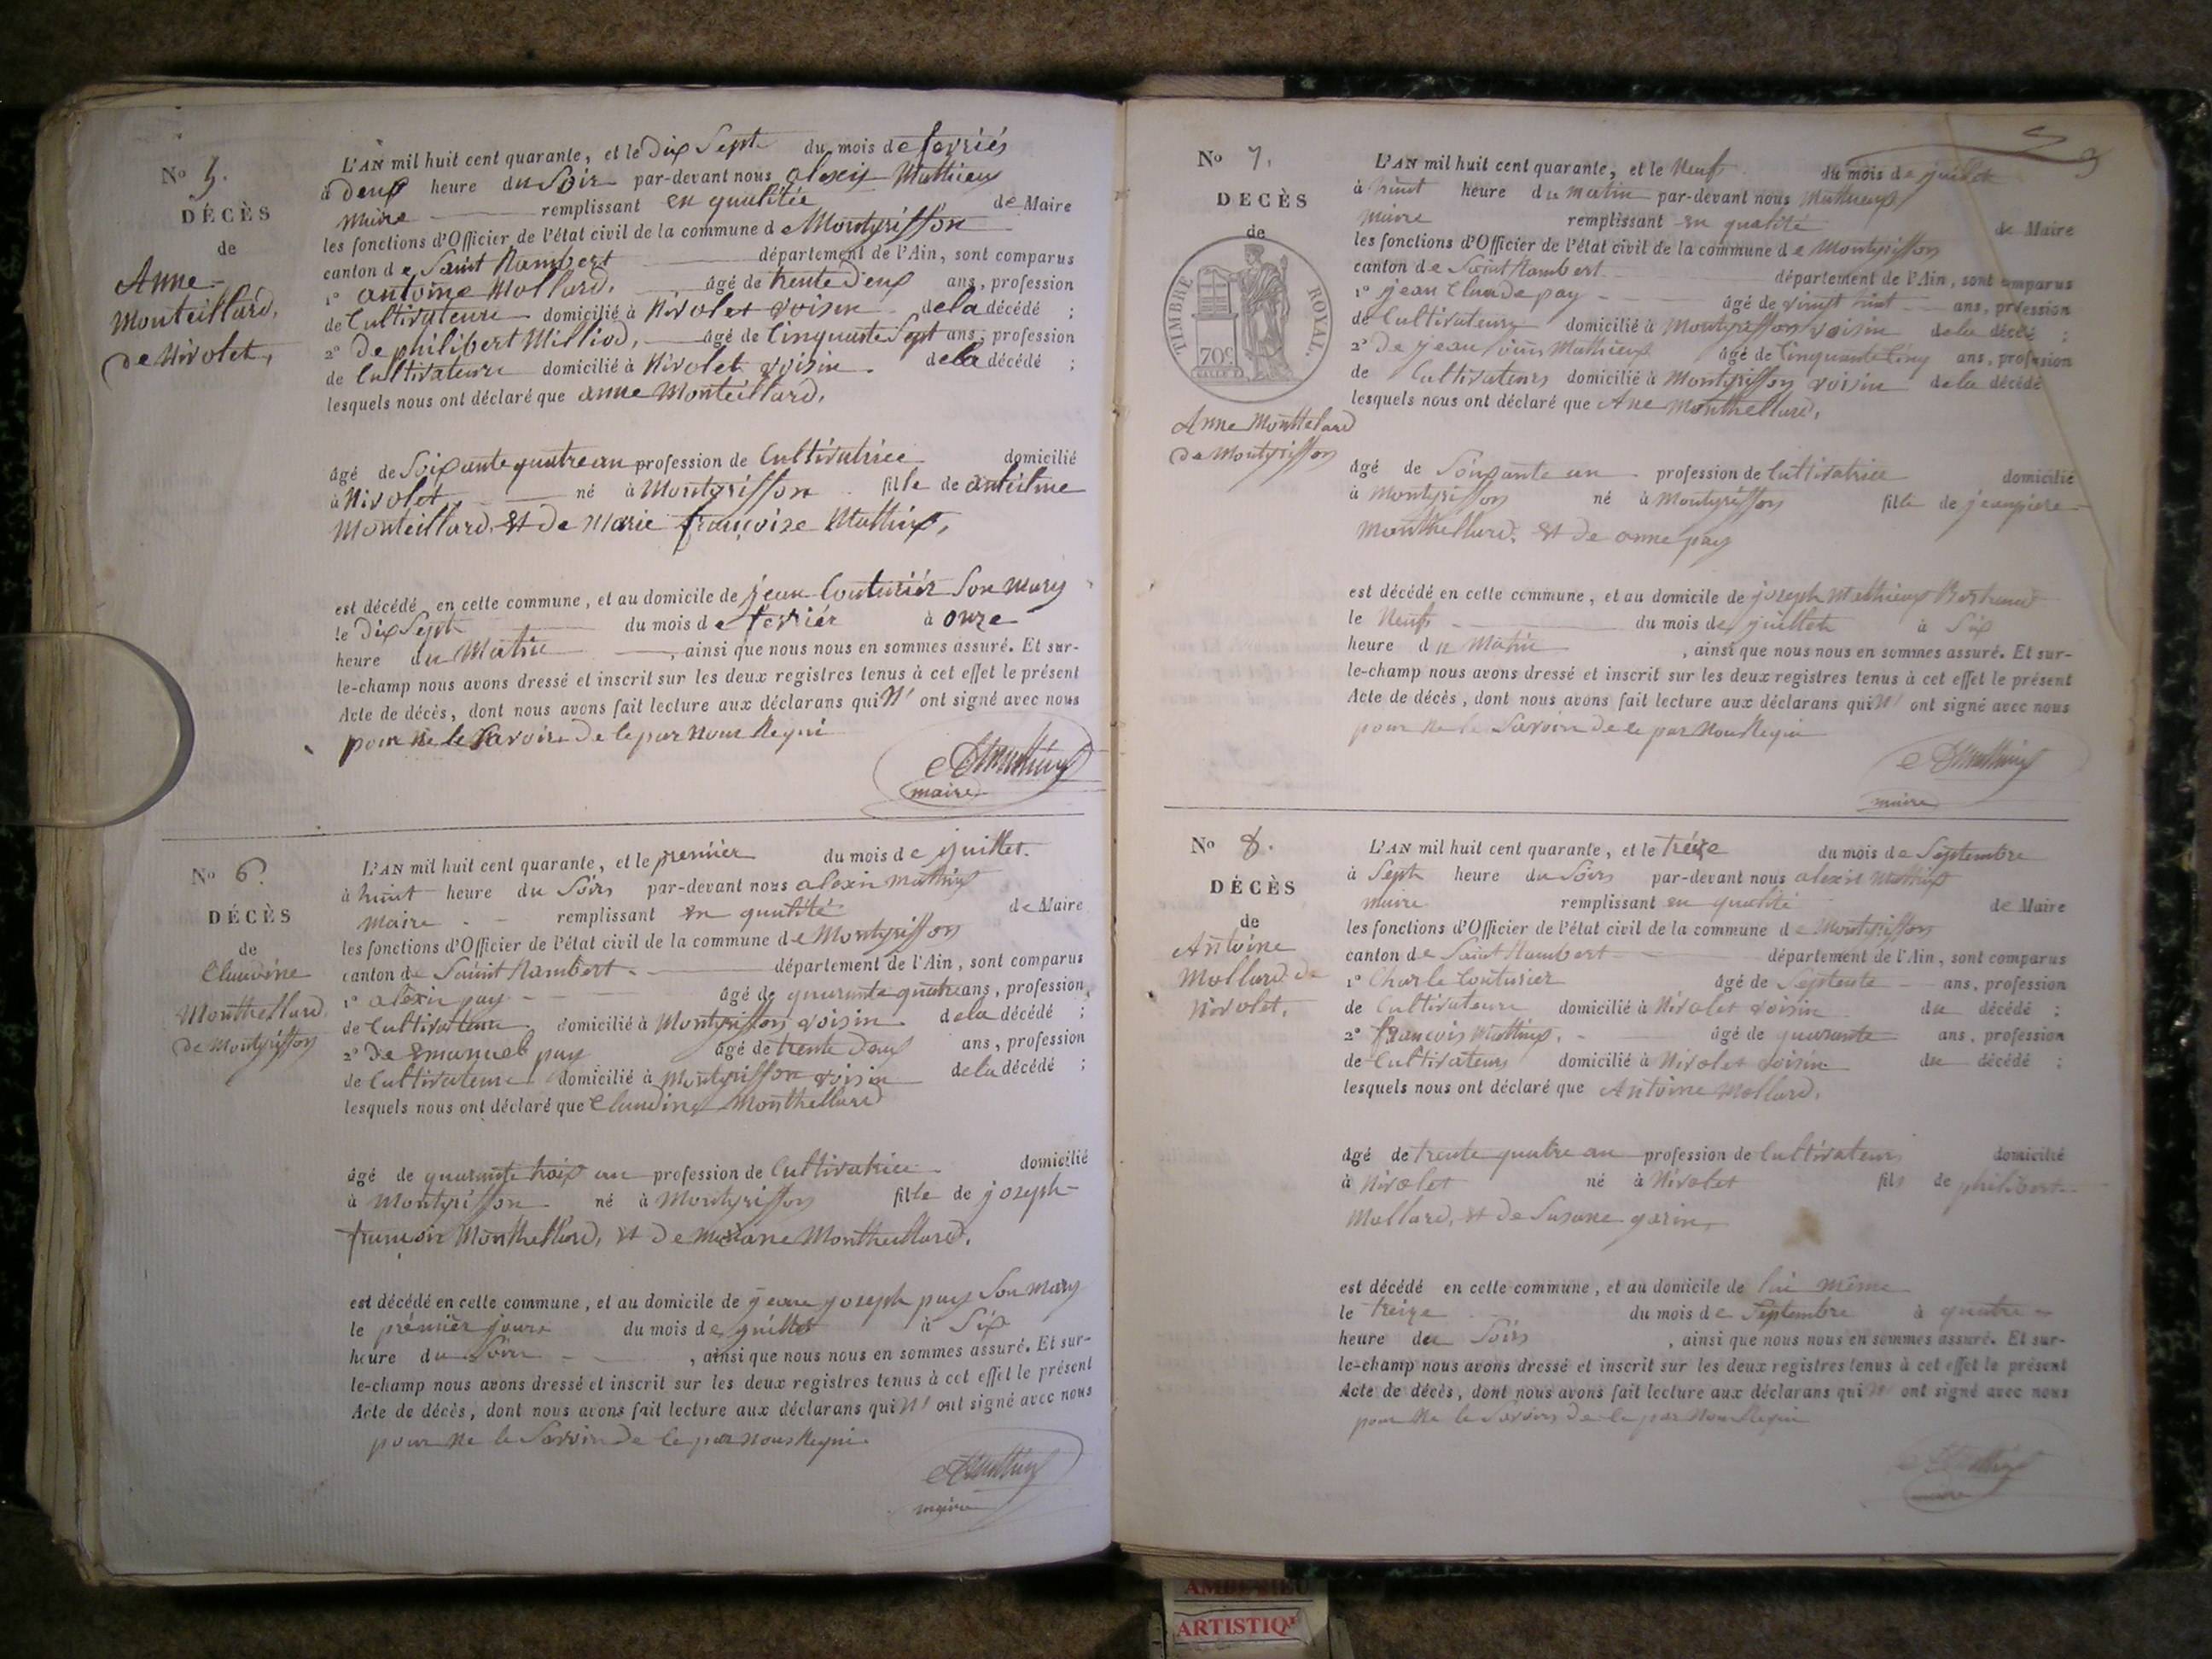 No 5.
DÉCÈS
de
Anne
Monteillard,
de Nivolet,
L'AN mil huit cent quarante, et le Dix Sept du mois de fevriés
à deux heure du Soir par-devant nous alexis Mathieux
Maire remplissant en qualitée de Maire
les fonctions d'Officier de l'état civil de la commune de Montgriffon
canton de Saint Rambert département de l'Ain, sont comparus
1° antoine Mollard, âgé de trente deux ans, profession
de Cultivateure domicilié à Nivolet voisin de la décédé ;
2° De philibert Milliod, âgé de Cinquante Sept ans, profession
de Cultivateure domicilié à Nivolet voisin de la décédé ;
lesquels nous ont déclaré que anne Monteillard,
âgé de Soixante quatre an profession de Cultivatrice domicilié
à Nivolet né à Montgriffon fille de
Monteillard, et De Marie françoise Mathieux,
est décédé en cette commune, et au domicile de jean Couturiér Son Mary
le Dix Sept du mois de fevriér à onze
heure du Matin , ainsi que nous nous en sommes assuré. Et sur-
le-champ nous avons dressé et inscrit sur les deux registres tenus à cet effet le présent
Acte de décès, dont nous avons fait lecture aux déclarans qui N' ont signé avec nous
pour ne le Savoire De le par Nous Requi
maire
No 6.
DÉCÈS
de
Claudine
Monthellard
de Montgriffon
L'AN mil huit cent quarante, et le premier du mois de juillet.
à huit heure du Soirs par-devant nous alexis Mathieux
Maire remplissant en qualité de Maire
les fonctions d'Officier de l'état civil de la commune de Montgriffon
canton de Sainit Rambert département de l'Ain, sont comparus
1° alexis puy âgé de quarante quatre ans, profession
de Cultivateure domicilié à Montgriffon voisin de la décédé ;
2° De Emanuel puy âgé de trente Deux ans, profession
de Cultivateure domicilié à Montgriffon voisin de la décédé ;
lesquels nous ont déclaré que Claudine Monthellard
âgé de quarante trois an profession de Cultivatrice domicilié
à Montgriffon né à Montgriffon fille de joseph
francois Monthellard, et De Monthellard.
est décédé en cette commune, et au domicile de jean joseph puy Son Mary
le premier jours du mois de juillet à Six
heure du Soire , ainsi que nous nous en sommes assuré. Et sur-
le-champ nous avons dressé et inscrit sur les deux registres tenus à cet effet le présent
Acte de décès, dont nous avons fait lecture aux déclarans qui N' ont signé avec nous
pour ne le Savoir De le par nous Requi
maire
No 7.
DÉCÈS
de
TIMBRE ROYAL.
70c
Anne Monttelard
de Montgriffon
L'AN mil huit cent quarante, et le Neuf du mois de juillet
à huit heure du matin par-devant nous Mathieux
Maire remplissant en qualité de Maire
les fonctions d'Officier de l'état civil de la commune de Montgriffon
canton de Saint Rambert département de l'Ain, sont comparus
1° jean Claude puy âgé de vingt huit ans, profession
de Cultivateure domicilié à Montgriffon voisin de la décédé ;
2° De jean Mathieux âgé de Cinquante Cinq ans, profession
de Cultivateurs domicilié à Montgriffon voisin de la décédé
lesquels nous ont déclaré que Ane Monthellard,
âgé de Soixante un profession de Cultivatrice domicilié
à Montgriffon né à Montgriffon fille de jeanpiere
Monthellard, et De anne puy
est décédé en cette commune, et au domicile de joseph Mathieux Bertrand
le Neuf du mois de juillet à Six
heure du Matin , ainsi que nous nous en sommes assuré. Et sur-
le-champ nous avons dressé et inscrit sur les deux registres tenus à cet effet le présent
Acte de décès, dont nous avons fait lecture aux déclarans qui N' ont signé avec nous
pour ne le Savoir De le par Nous Requi
maire
No 8.
DÉCÈS
de
Antoine
Mollard de
Nivolet,
L'AN mil huit cent quarante, et le treize du mois de Septembre
à Sept heure du Soirs par-devant nous alexis Mathieux
Maire remplissant en qualité de Maire
les fonctions d'Officier de l'état civil de la commune de Montgriffon
canton de Saint Rambert département de l'Ain, sont comparus
1° Charle Couturier âgé de Septente ans, profession
de Cultivateure domicilié à Nivolet voisin du décédé ;
2° françois Mathieux, âgé de quarante ans, profession
de Cultivateurs domicilié à Nivolet voisin du décédé ;
lesquels nous ont déclaré que Antoine Mollard,
âgé de trente quatre an profession de Cultivateurs domicilié
à Nivolet né à Nivolet fils de philibert
Mollard, et De Susane garin
est décédé en cette commune, et au domicile de lui même
le treize du mois de Septembre à quatre
heure du Soirs , ainsi que nous nous en sommes assuré. Et sur-
le-champ nous avons dressé et inscrit sur les deux registres tenus à cet effet le présent
Acte de décès, dont nous avons fait lecture aux déclarans qui N' ont signé avec nous
pour ne le Savoirs De le par Nous Requi
maire
AMBERIEU
ARTISTIQU